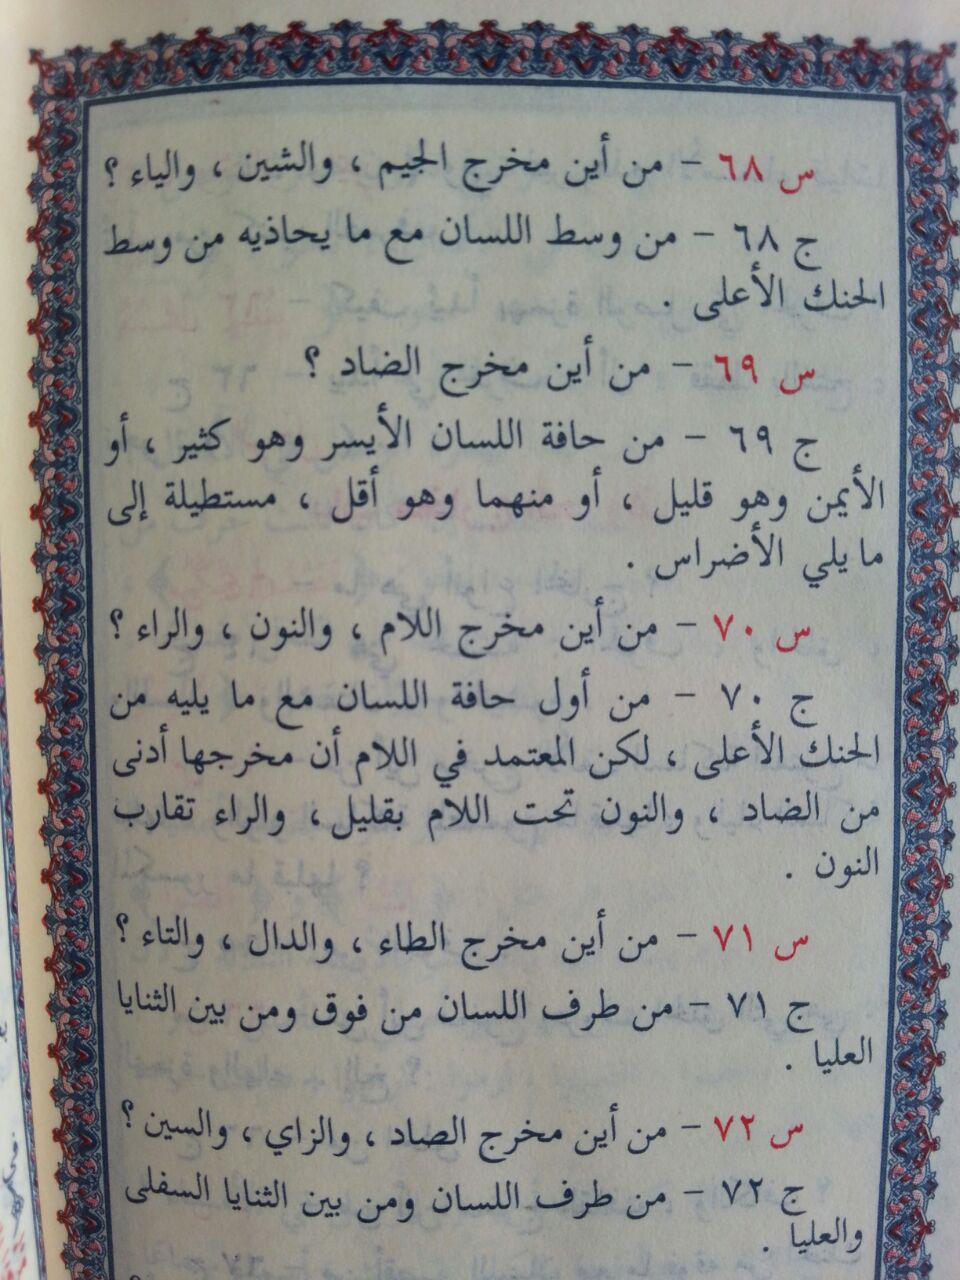 س ٦٨ – من أين مخرج الجيم ، والشين ، والياء ؟
ج ٦٨ – من وسط اللسان مع ما يحاذيه من وسط
الحنك الأعلى .
س ٦٩ – من أين مخرج الضاد ؟
ج ٦٩ – من حافة اللسان الأيسر وهو كثير ، أو
الأيمن وهو قليل ، أو منهما وهو أقل ، مستطيلة إلى
ما يلي الأضراس .
س ٧٠ – من أين مخرج اللام ، والنون ، والراء ؟
ج ٧٠ – من أول حافة اللسان مع ما يليه من
الحنك الأعلى ، لكن المعتمد في اللام أن مخرجها أدنى
من الضاد ، والنون تحت اللام بقليل ، والراء تقارب
النون .
س ٧١ – من أين مخرج الطاء ، والدال ، والتاء ؟
ج ٧١ – من طرف اللسان من فوق ومن بين الثنايا
العليا .
س ٧٢ – من أين مخرج الصاد ، والزاي ، والسين ؟
ج ٧٢ – من طرف اللسان ومن بين الثنايا السفلى
والعليا .